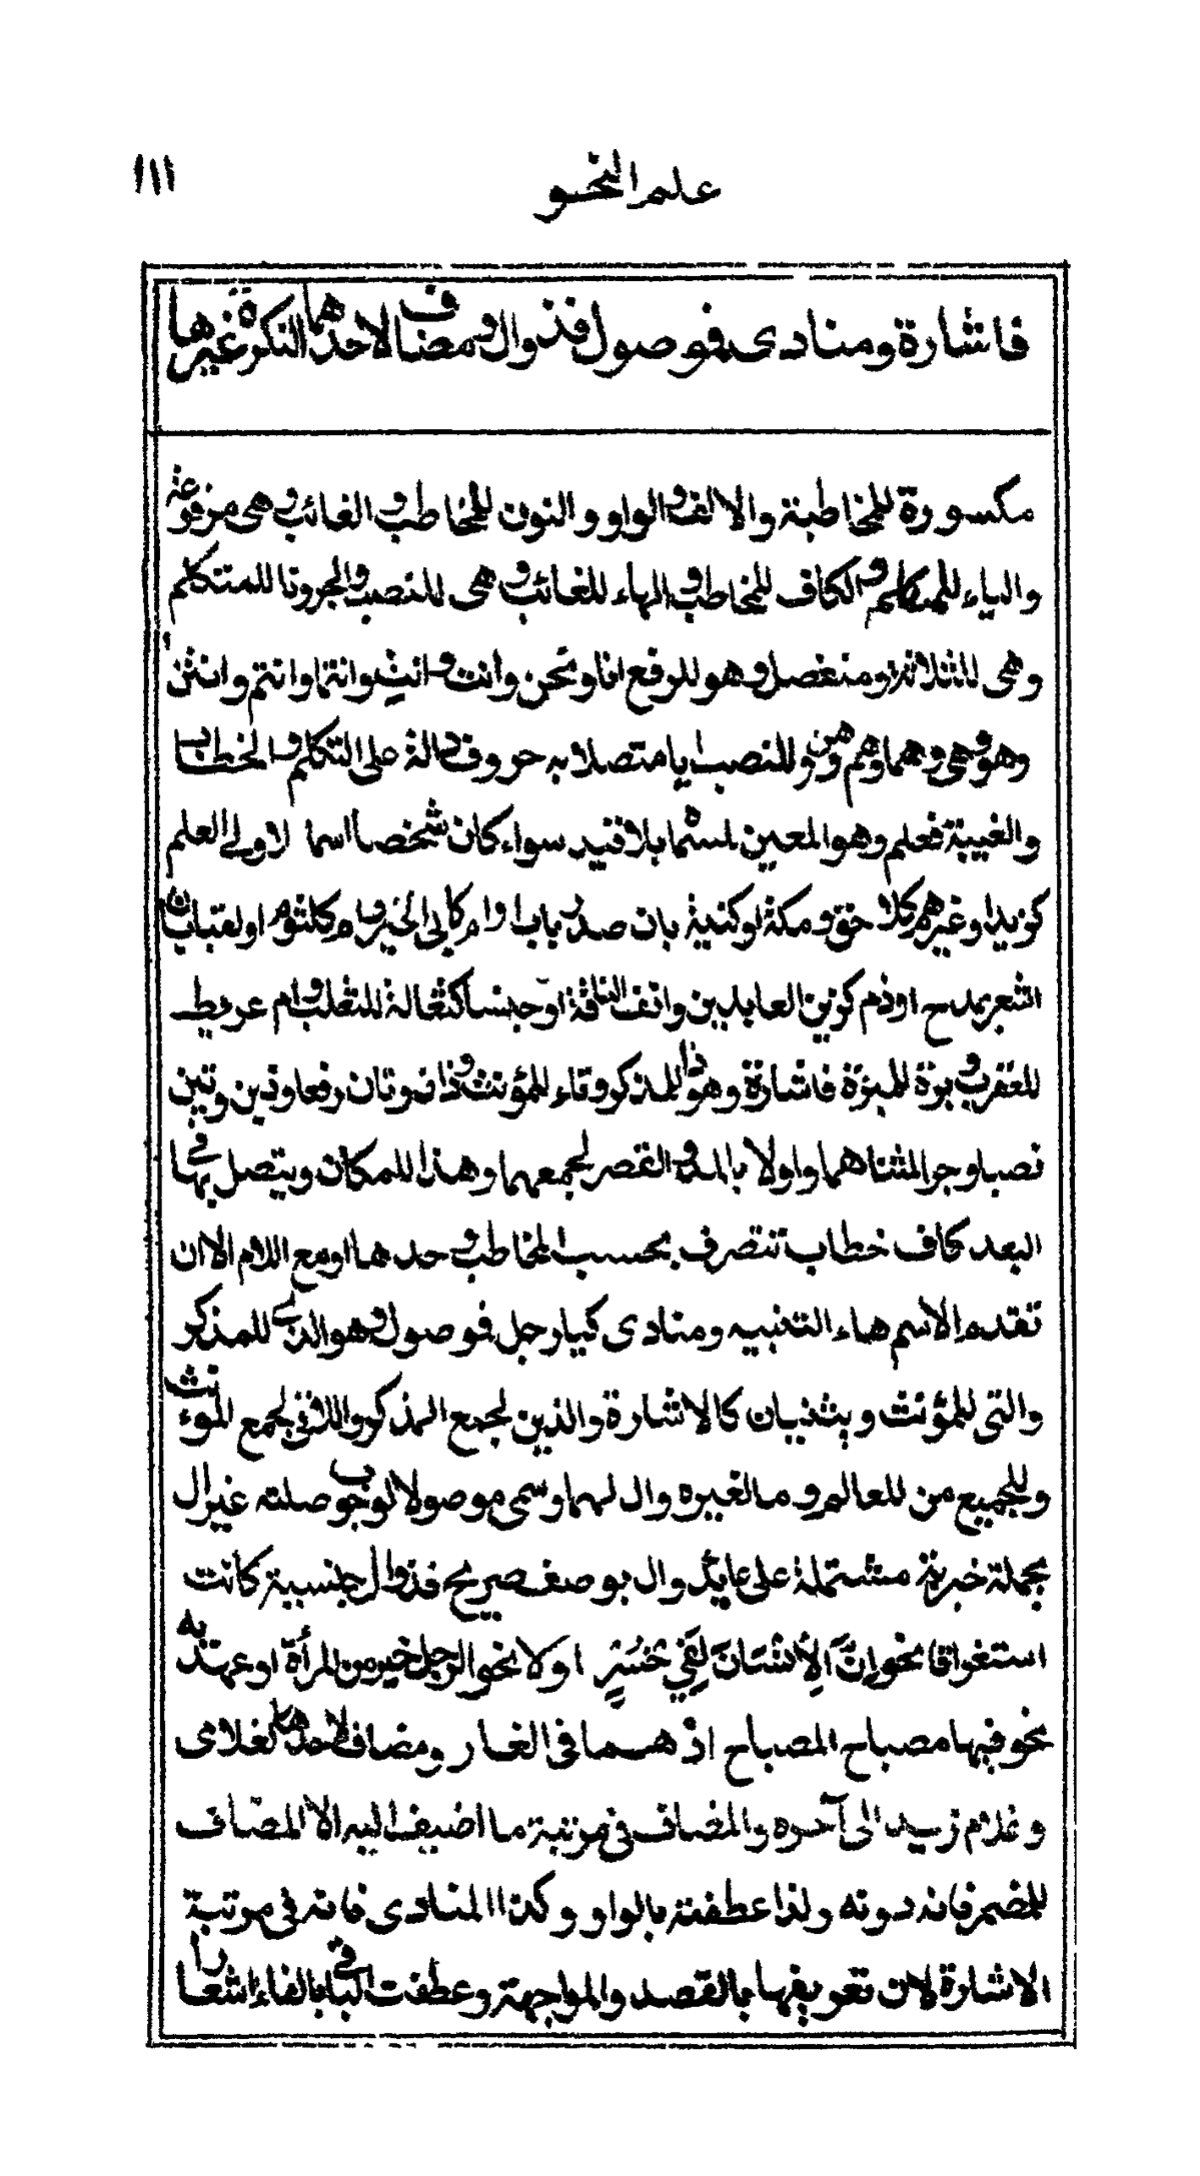 علم النحو ١١١
فاشارة ومنادى فموصول فذو ال ومضاف لاحدهما النكرة غيرها
مكسورة للمخاطبة والالف والواو والنون للمخاطب والغائب وهى مرفوعة
والياء للمتكلم والكاف للمخاطب والهاء للغائب وهى للنصب والجر ونا للمتكلم
وهى للثلاثة ومنفصل وهو للرفع انا ونحن وانت وانتِ وانتما وانتم وانتن
وهو وهى وهما وهم وهن وللنصب ايا متصلا به حروف دالة على التكلم والخطاب
والغيبة فعلم وهو المعين لمسماه بلا قيد سواء كان شخصا اسما لاولى العلم
كزيد او غيرهم كلاحق ومكة او كنية بان صدر باب او ام كابى الخير وام كلثوم او لقبا بان
اشعر بمدح او ذم كزين العابدين وانف الناقة او جنسا كثعالة للثعلب وام عريط
للعقرب وبرة للمبرة فاشارة وهو ذا للمذكر وتاء للمؤنث وذان وتان رفعا وذين وتين
نصبا وجرا لمثناهما واولا بالمد والقصر لجمعهما وهذا للمكان ويتصل بها فى
البعد كاف خطاب تتصرف بحسب المخاطب وحدها او مع اللام الا ان
تقدم الاسم هاء التنبيه ومنادى كيا رجل فموصول وهو الذى للمذكر
والتى للمؤنث ويثنيان كالاشارة والذين لجمع المذكر واللائى لجمع الموءنث
وللجميع من للعالم وما لغيره وال لهما وسمى موصولا لوجوب صلته غير ال
بجملة خبرية مشتملة على عايد وال بوصف صريح فذو ال جنسية كانت
استغراقا نحو اِنَّ الْاِنْسَانَ لَفِيْ خُسْرٍ او لا نحو الرجل خير من المرأة او عهدية
نحو فيها مصباح المصباح اذ هما فى الغار ومضاف لاحدها كغلامى
وغلام زيد الى آخره والمضاف فى مرتبة ما اضيف اليه الا المضاف
للمضمر فانه دونه ولذا عطفته بالواو وكذا المنادى فانه فى مرتبة
الاشارة لان تعريفها بالقصد والمواجهة وعطفت الباقى بالفاء اشعارا